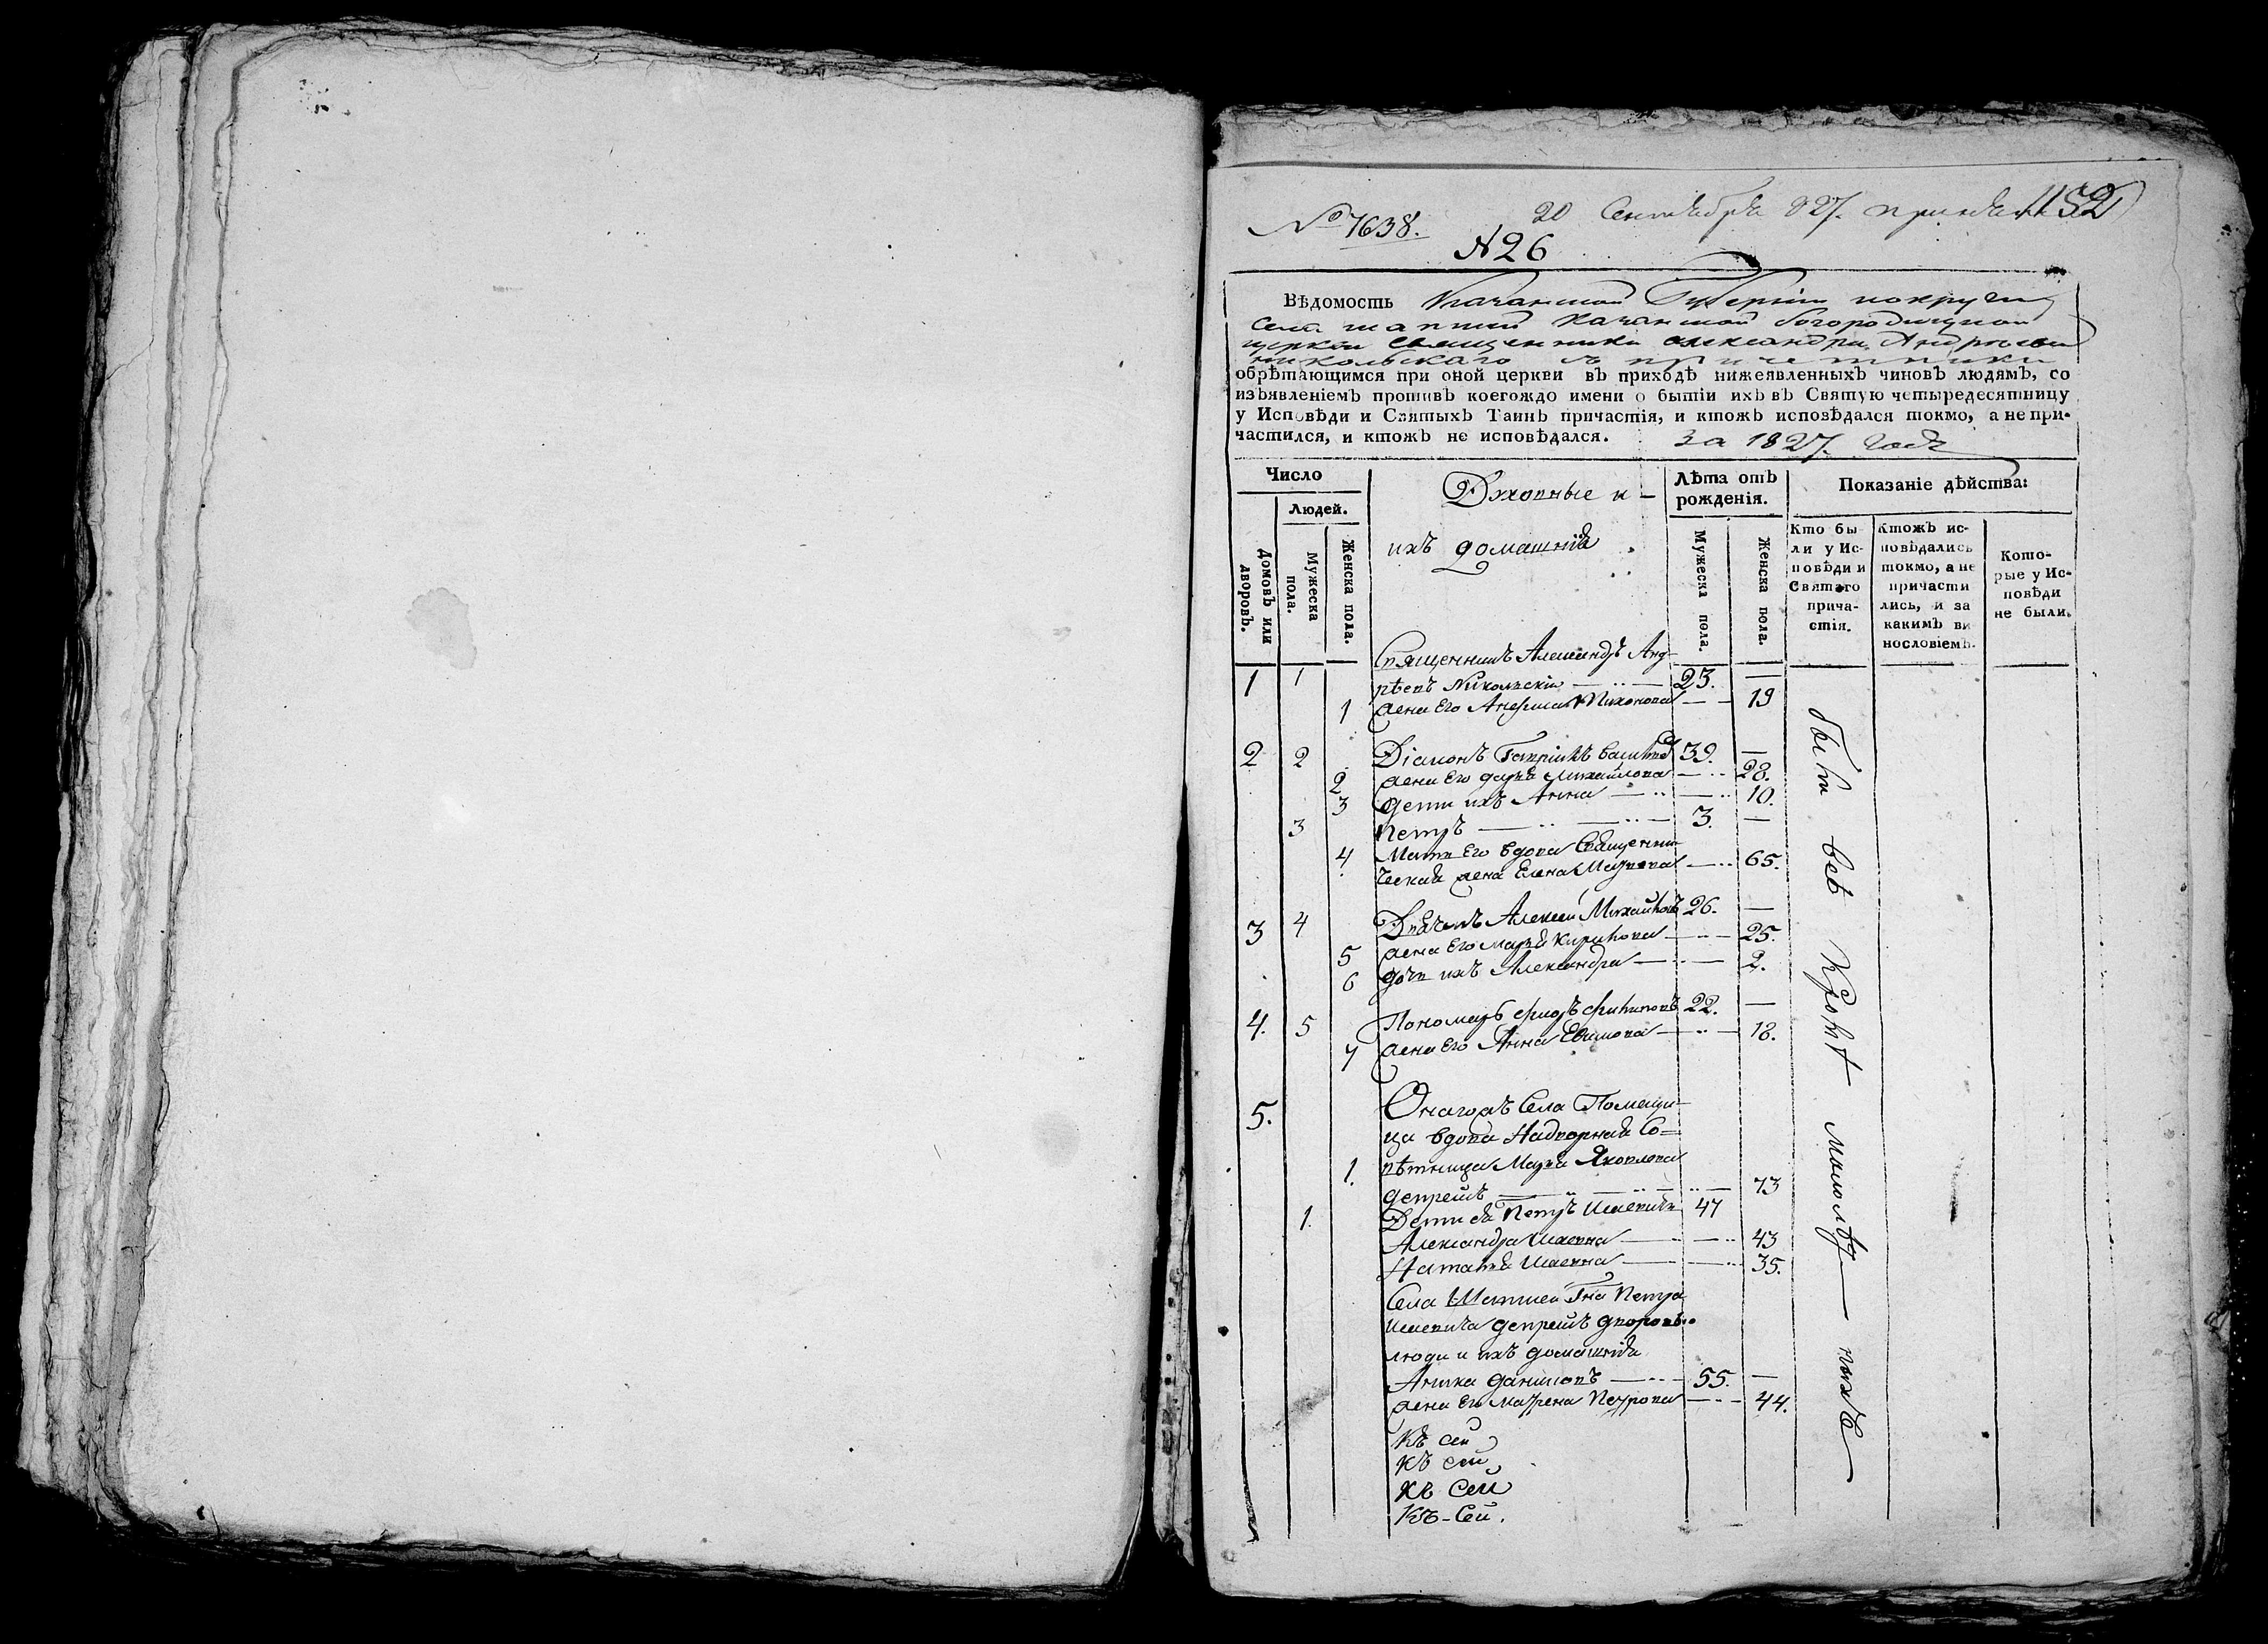 № 7638.
20 Сентября 827. 1152
№ 26
Вѣдомость Казанской Губерніи по округи
села шапшей казанской богородицкой
церкви священника александра Андреева
никольскаго с причетники
обрѣтающимся при оной церкви въ приходѣ нижеявленныхъ чиновъ людямъ, со
изъявленіемъ противъ коегождо имени о бытіи ихъ въ Святую четыредесятницу
у Исповѣди и Святыхъ Таинъ причастія, и ктожъ исповѣдался токмо, а не при-
частился, и ктожъ не исповѣдался. за 1827. годъ
Число
Людей.
Домовъ или дворовъ.
Мужеска пола.
Женска пола.
Духовные и –
ихъ домашнія
Лѣта отъ рожденія.
Мужеска пола.
Женска пола.
Показаніе дѣйства:
Кто бы-
ли у Ис-
повѣди и
Святаго
прича-
стія.
Ктожъ ис-
повѣдались
токмо, а не
причасти
лись, и за
какимъ ви
нословіемъ.
Кото-
рые у Ис-
повѣди
не были.
Священникъ Александръ Анд-
1 1 рѣевъ Никольскіи 23. —
1 жена Его Тихонова 19
2 2 Діаконъ Гавріилъ Васильевъ 39. —
2 жена Его дарья Михайлова 28.
3 дети ихъ Анна 10.
3 Петръ 3. —
Мать Его вдова Священни
4 ческая жена Елена Маркова 65.
3 4 Дьячекъ Алексеи Михайловъ 26. —
5 жена Его Марья Кирилова 25.
6 дочь ихъ Александра 2.
4. 5 Пономарь филиповъ 22. —
7 жена Его Анна Ефимова 18.
5. Онагожъ Села Помещи-
ца вдова Надворная Со-
1. вѣтница Марья Яковлева
депрейшъ 73
1. Дети ея Петръ Исаевичь 47
Александра Исаевна 43
Наталья Исаевна 35.
Села Шапшей Гна Петра
Исаевича депрейшъ дворовы..
люди и ихъ домашнія
Аника даниловъ 55. —
жена Его Матрена Петрова 44.
Къ сей
Къ сей
Къ Сей
Къ-Сей.
были всѣ Кромѣ малолѣт— нихъ